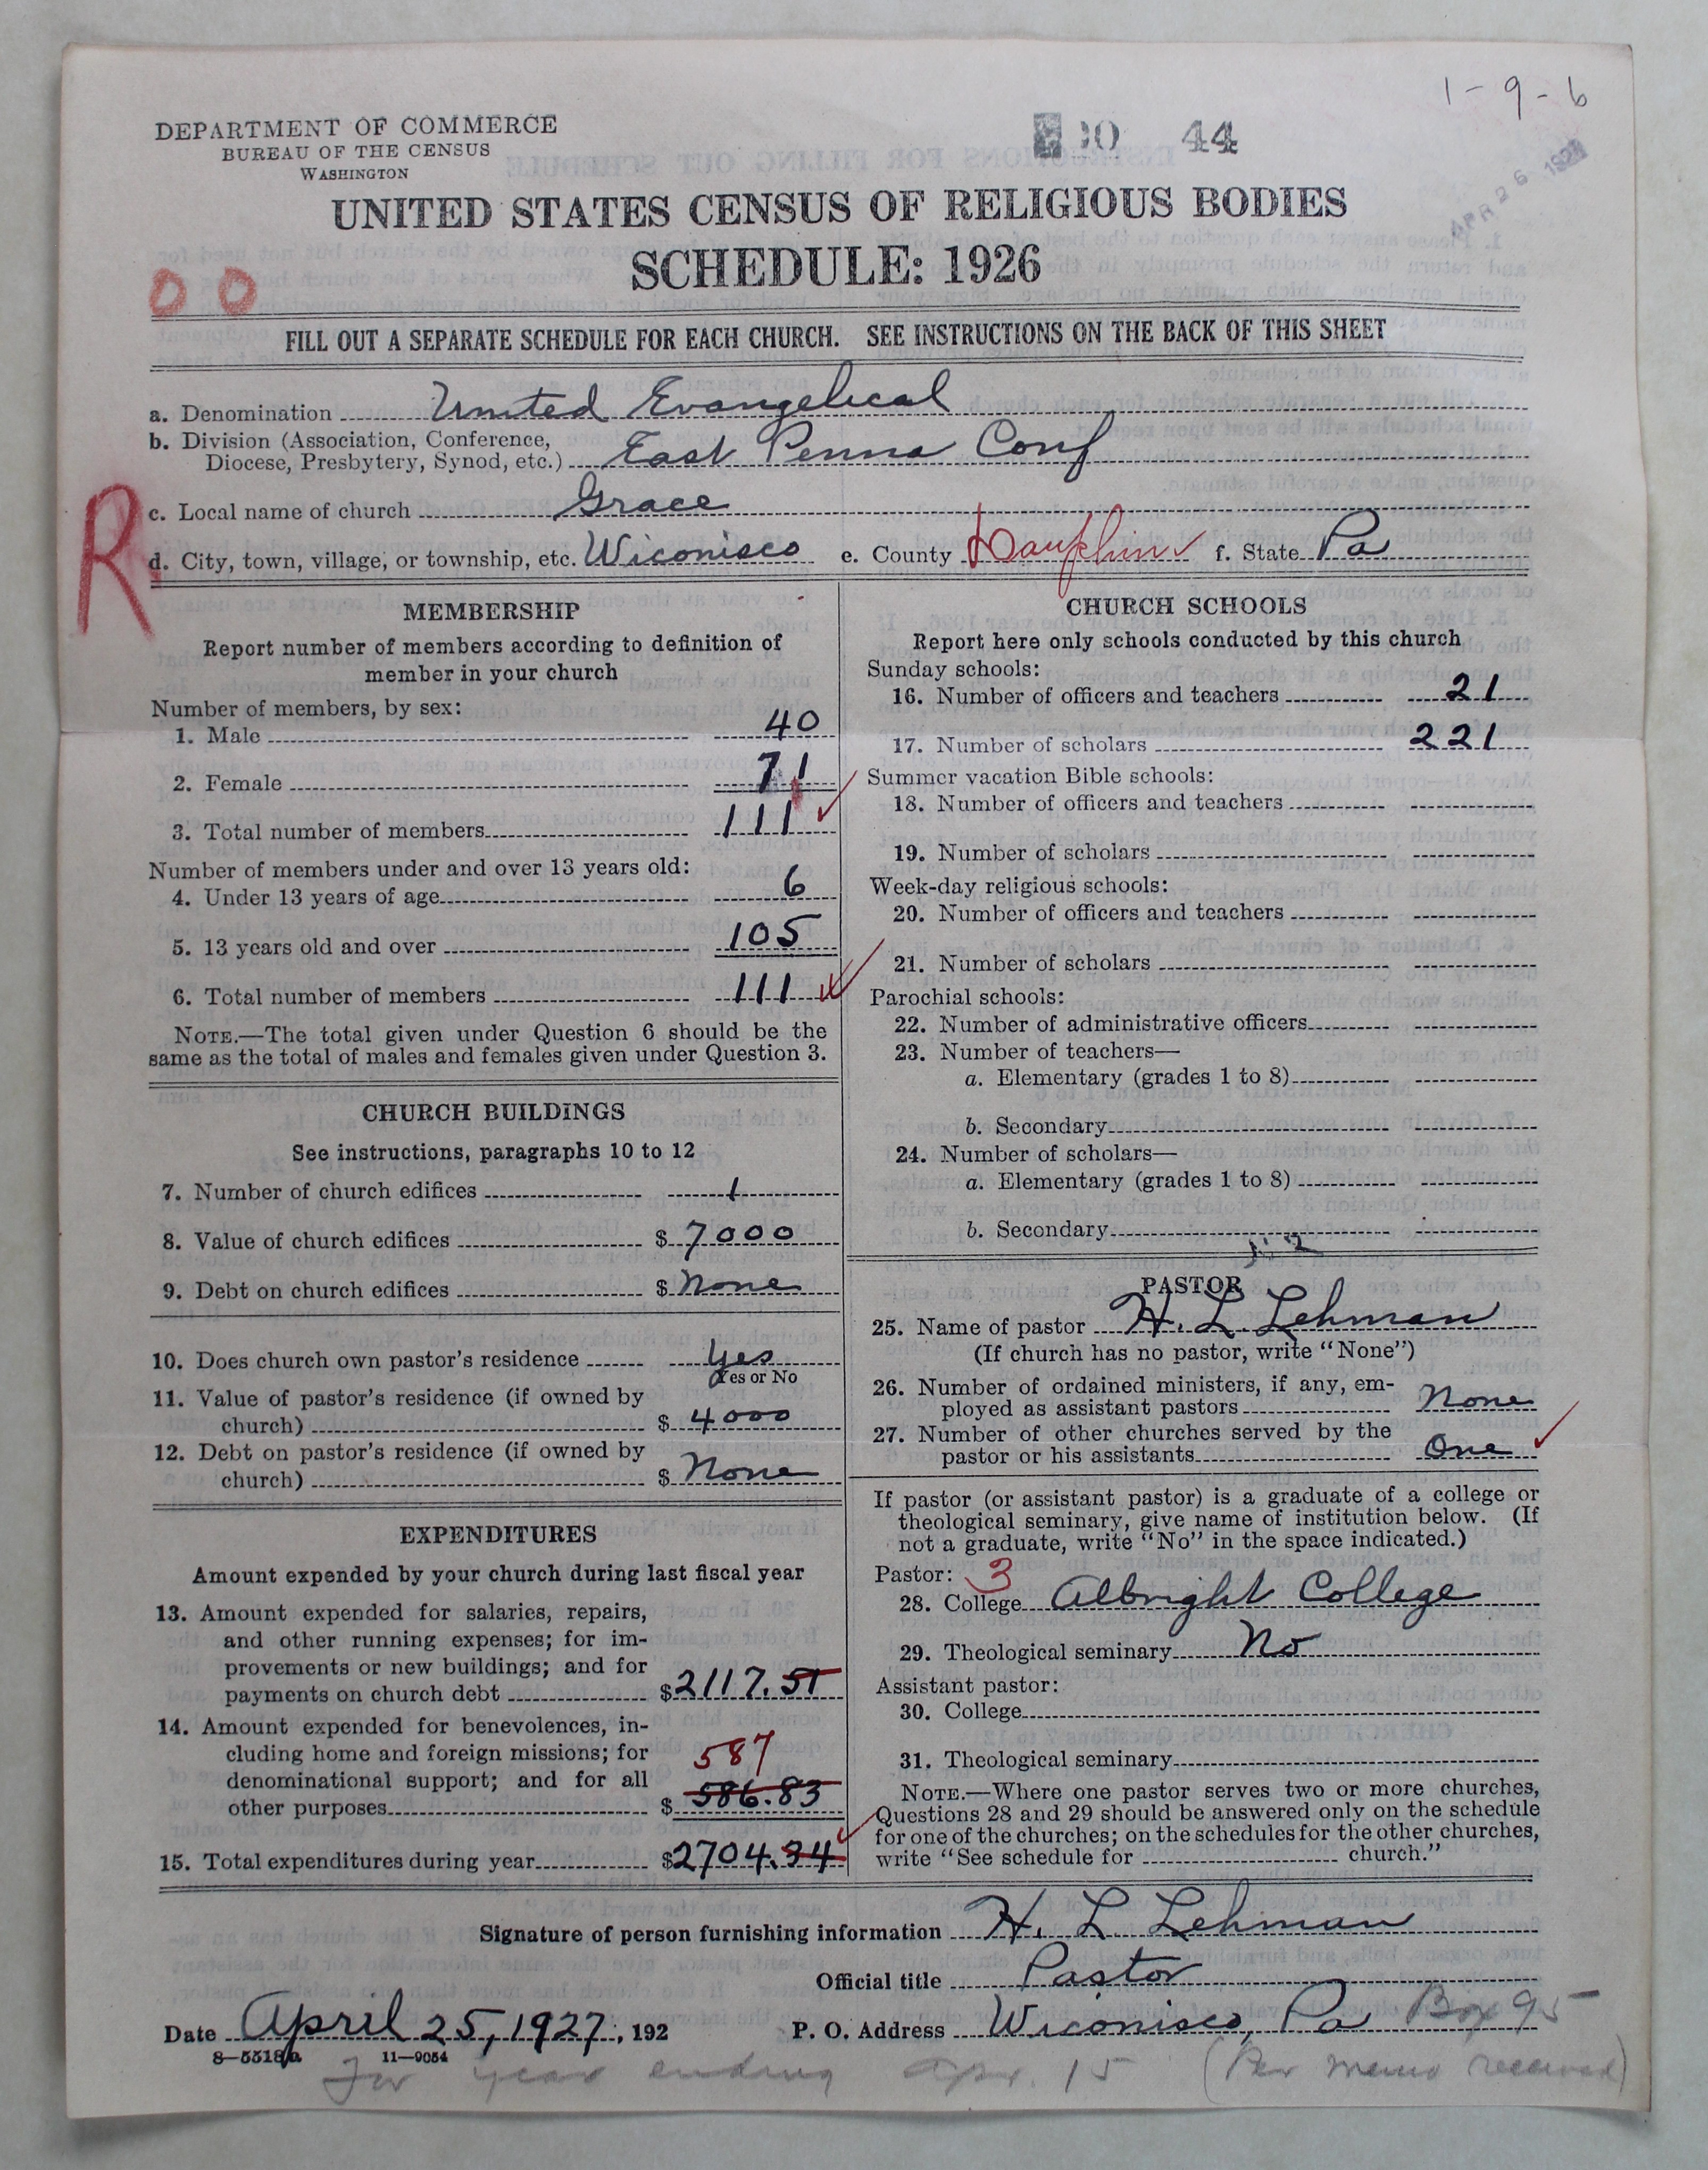 1-9-6
DEPARTMENT OF COMMERCE
BUREAU OF THE CENSUS
WASHINGTON
44
APR 26 1927
UNITED STATES CENSUS OF RELIGIOUS BODIES
SCHEDULE: 1926
00
FILL OUT A SEPARATE SCHEDULE FOR EACH CHURCH. SEE INSTRUCTIONS ON THE BACK OF THIS SHEET
a. Denomination United Evangelical
b. Division (Association, Conference,
Diocese, Presbytery, Synod, etc.) East Penna Conf
R
c. Local name of church Grace
d. City, town, village, or township, etc. Wiconisco e. County Dauphin f. State Pa
MEMBERSHIP
Report number of members according to definition of
member in your church
Number of members, by sex:
1. Male 40
2. Female 71
3. Total number of members 111
Number of members under and over 13 years old:
4. Under 13 years of age 6
5. 13 years old and over 105
6. Total number of members 111
NOTE.—The total given under Question 6 should be the
same as the total of males and females given under Question 3.
CHURCH BUILDINGS
See instructions, paragraphs 10 to 12
7. Number of church edifices 1
8. Value of church edifices $ 7000
9. Debt on church edifices $ None
10. Does church own pastor's residence Yes
Yes or No
11. Value of pastor's residence (if owned by
church) $ 4000
12. Debt on pastor's residence (if owned by
church) $ None
EXPENDITURES
Amount expended by your church during last fiscal year
13. Amount expended for salaries, repairs,
and other running expenses; for im-
provements or new buildings; and for
payments on church debt $2117.51
14. Amount expended for benevolences, in-
cluding home and foreign missions; for 587
denominational support; and for all
other purposes $ 586.83
15. Total expenditures during year $2704.34
CHURCH SCHOOLS
Report here only schools conducted by this church
Sunday schools:
16. Number of officers and teachers 21
17. Number of scholars 221
Summer vacation Bible schools:
18. Number of officers and teachers
19. Number of scholars
Week-day religious schools:
20. Number of officers and teachers
21. Number of scholars
Parochial schools:
22. Number of administrative officers
23. Number of teachers—
a. Elementary (grades 1 to 8)
b. Secondary
24. Number of scholars—
a. Elementary (grades 1 to 8)
b. Secondary
PASTOR
25. Name of pastor H. L. Lehman
(If church has no pastor, write "None")
26. Number of ordained ministers, if any, em-
ployed as assistant pastors None
27. Number of other churches served by the
pastor or his assistants One
If pastor (or assistant pastor) is a graduate of a college or
theological seminary, give name of institution below. (If
not a graduate, write "No" in the space indicated.)
Pastor: 3
28. College Albright College
29. Theological seminary No
Assistant pastor:
30. College
31. Theological seminary
NOTE.—Where one pastor serves two or more churches,
Questions 28 and 29 should be answered only on the schedule
for one of the churches; on the schedules for the other churches,
write "See schedule for church."
Signature of person furnishing information H. L. Lehman
Official title Pastor
Date April 25, 1927, 192 P. O. Address Wiconisco, Pa Box 95
8-5518a 11-9054
For year ending Apr. 15 (Per memo received)